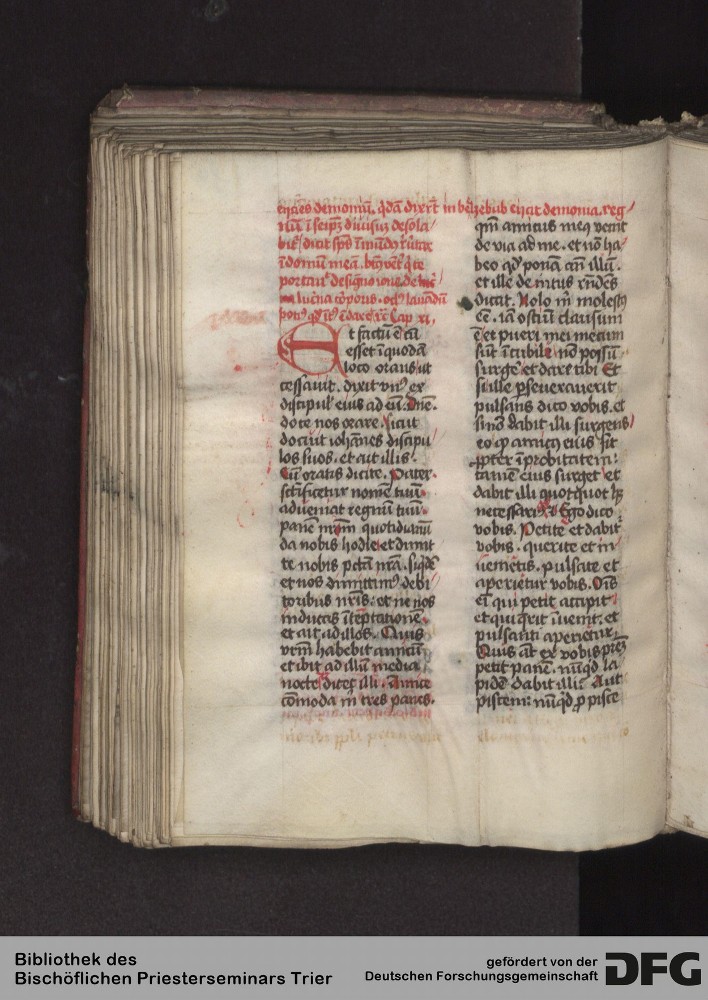 eijciēs demoniū. qdā dixert̄ in belzebub eicit demonia. reg
nū ī seipm̄ diuisuȝ desola
bit~ dicit sps īmūdȝ
ī domū meā.
de signo ione de
lucēna corporis.
cap xi.
Et factū ē cū
esset ī quodā
loco orans ut
cessauit. dixit vnꝰ ex
discipul' eius ad eū. Dn̄e.
doce nos orare. sicut
docuit ioh'anes discipu
los suos. et ait illis.
Cū oratis dicite. Pater.
sc̄ificetur nomē tuū.
adueniat regnū tuū.
panē nr̄m quotidianū
da nobis hodie et dimit
te nobis pctā nrā. siqdē
et nos dimittimꝰ debi
toribus nr̄is. et ne nos
inducas ī teptationē.
et ait ad illos. Quis
vrm̄ habebit amicū
et ibit ad illū media
nocte dicet illi. Amice
cōmoda m̄ tres panes.
qm̄ amicus meꝰ venit
de via ad me. et nō ha
beo qd' ponā an̄ illū.
et ille de intus rn̄dēs
dicat. Nolo m̄ molestꝰ
eē. iā ostiū clausum
ē et pueri mei mecum
sūt ī cubile nō possū
surge' et dare tibi Et
si ille pseuerauerit
pulsans dico vobis. et
si nō dabit illi surgens
eo qͻ amicꝰ eius sit
ꝓpter īprobitatem
tamē eius surget et
dabit illi quotquot hȝ
necessariꝰ. Ego dico
vobis. Petite et dabit~
vobis. querite et in
ueniētis. pulsate et
aperietur vobis. Oīs
eī qui petit accipit
et qui qrit īuenit. et
pulsanti aperietur.
Quis aūt ex vobis prēȝ
petit panē. nūqd la
pidē dabit illi? Aut
pistem: nūqd ꝓ pisce
Bibliothek des
Bischöflichen Priesterseminars Trier
gefördert von der
Deutschen Forschungsgemeinschaft
DFG